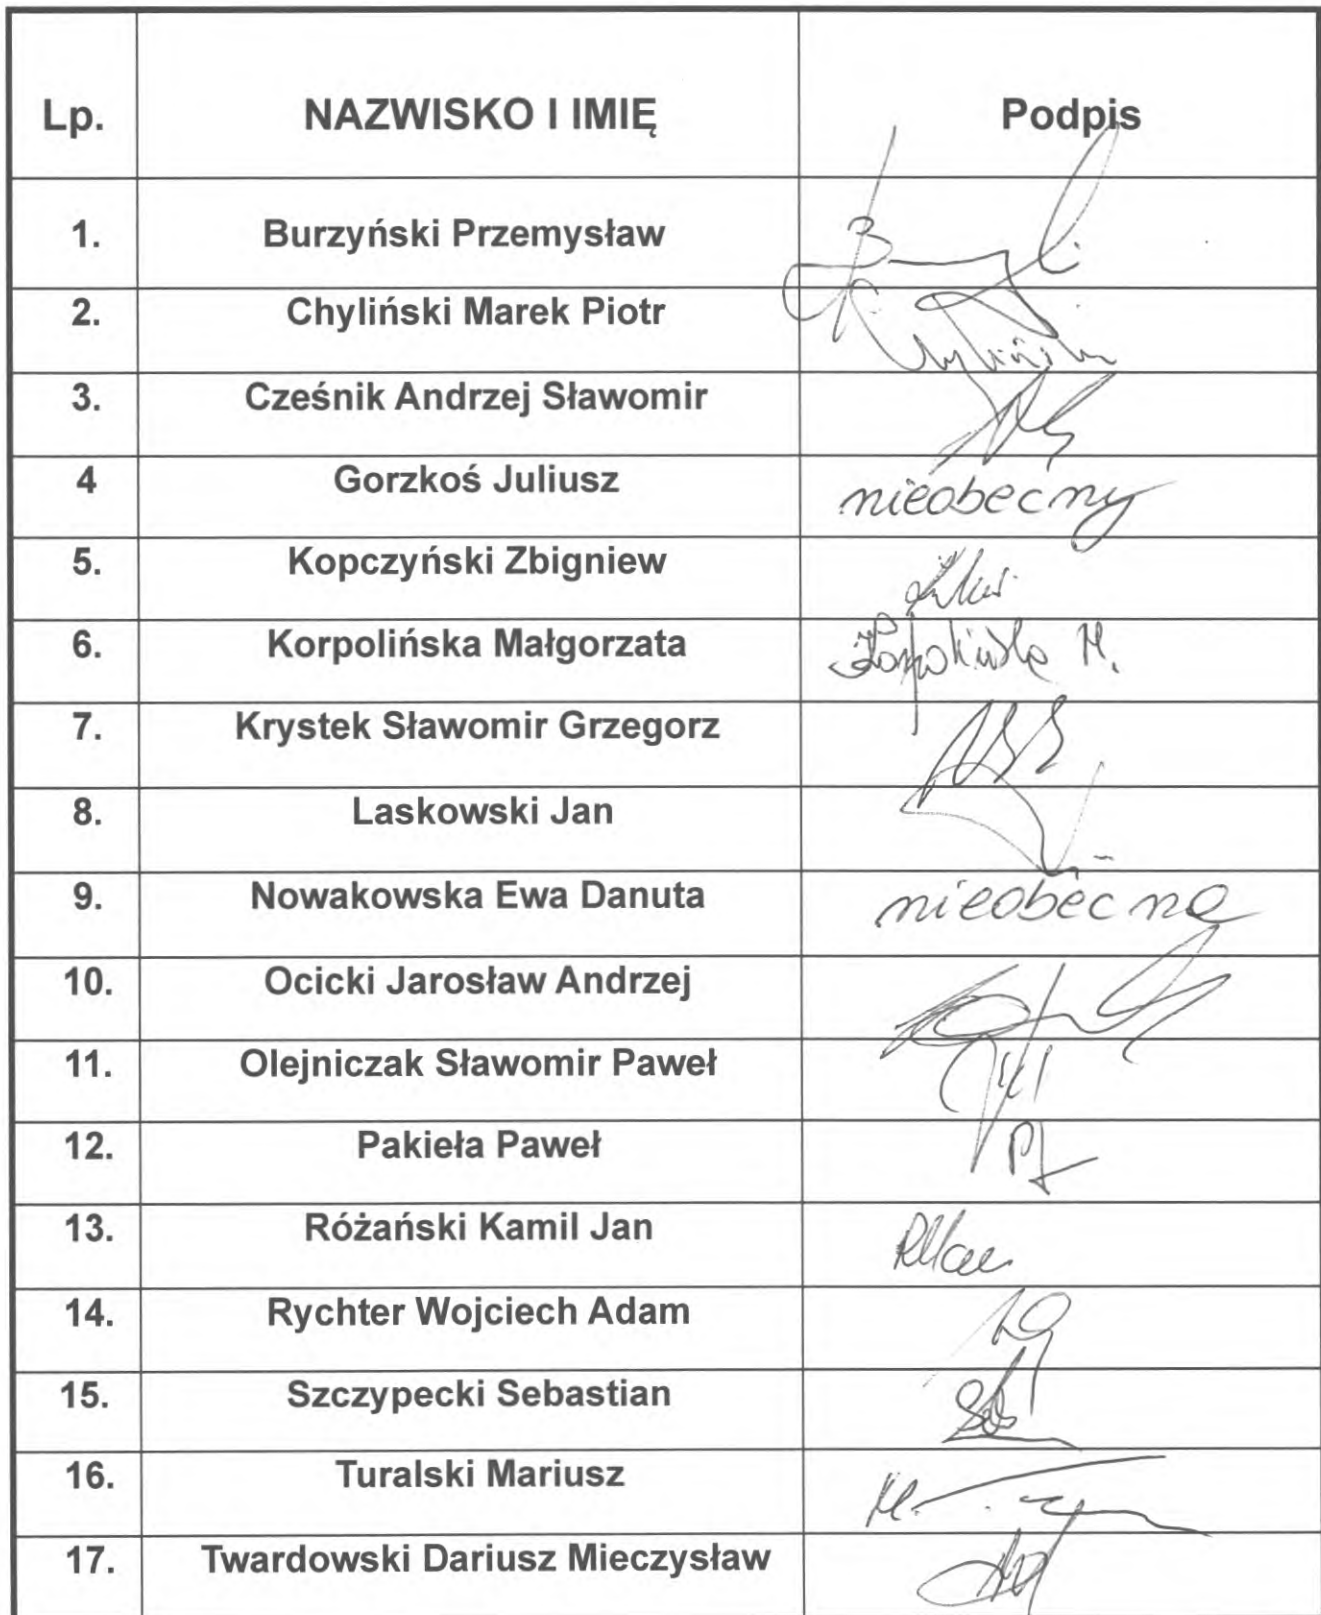 Lp. NAZWISKO I IMIĘ Podpis
1. Burzyński Przemysław
2. Chyliński Marek Piotr
3. Cześnik Andrzej Sławomir
4 Gorzkoś Juliusz nieobecny
5. Kopczyński Zbigniew
6. Korpolińska Małgorzata
7. Krystek Sławomir Grzegorz
8. Laskowski Jan
9. Nowakowska Ewa Danuta nieobecna
10. Ocicki Jarosław Andrzej
11. Olejniczak Sławomir Paweł
12. Pakieła Paweł
13. Różański Kamil Jan
14. Rychter Wojciech Adam
15. Szczypecki Sebastian
16. Turalski Mariusz
17. Twardowski Dariusz Mieczysław